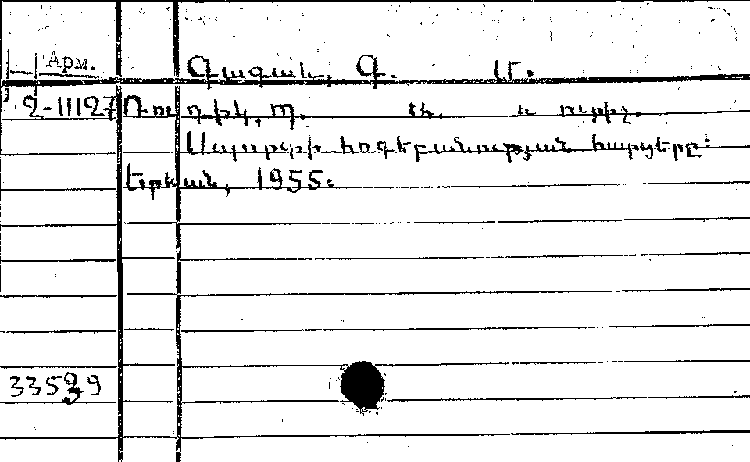 Арм.
Գագան, Գ. Մ.
2-11127 Ռուդիկ, Պ. Ա. և ուրիշ.
Սպորտի հոգեբանության հարցերը:
Երևան, 1955:
33539